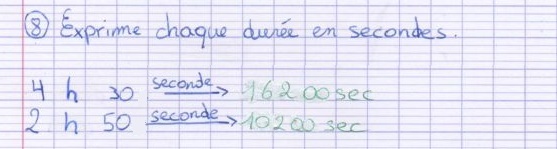 ⑧ Exprime chaque durée en secondes.
4 h 30 seconde → 16200 sec
2 h 50 seconde → 10200 sec